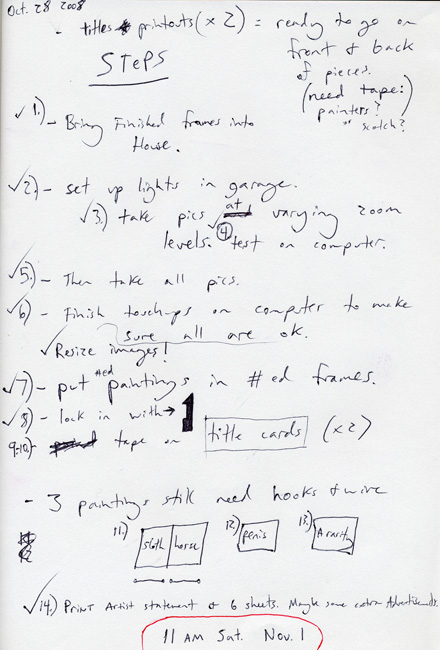 Oct. 28 2008
- titles & printouts (x 2) = ready to go on
front & back
of pieces.
(need tape:
painters?
or scotch?)
STEPS
✓ 1.) - Bring Finished frames into
House.
✓ 2.) - set up lights in garage.
✓ 3.) take pics at varying zoom
levels. ④ test on computer.
✓ 5.) - Then take all pics.
✓ 6) - Finish touch-ups on computer to make
sure all are ok.
✓ Resize images!
✓ 7) - put #ed paintings in #ed frames.
✓ 8) - lock in with → 1
9-10.) - tape on title cards (x2)
- 3 paintings still need hooks & wire
11.) sloth horse 12.) penis 13.) Ararity
✓ 14.) Print Artist statement & 6 sheets. Maybe some extra Advertisements.
11 AM Sat. Nov. 1